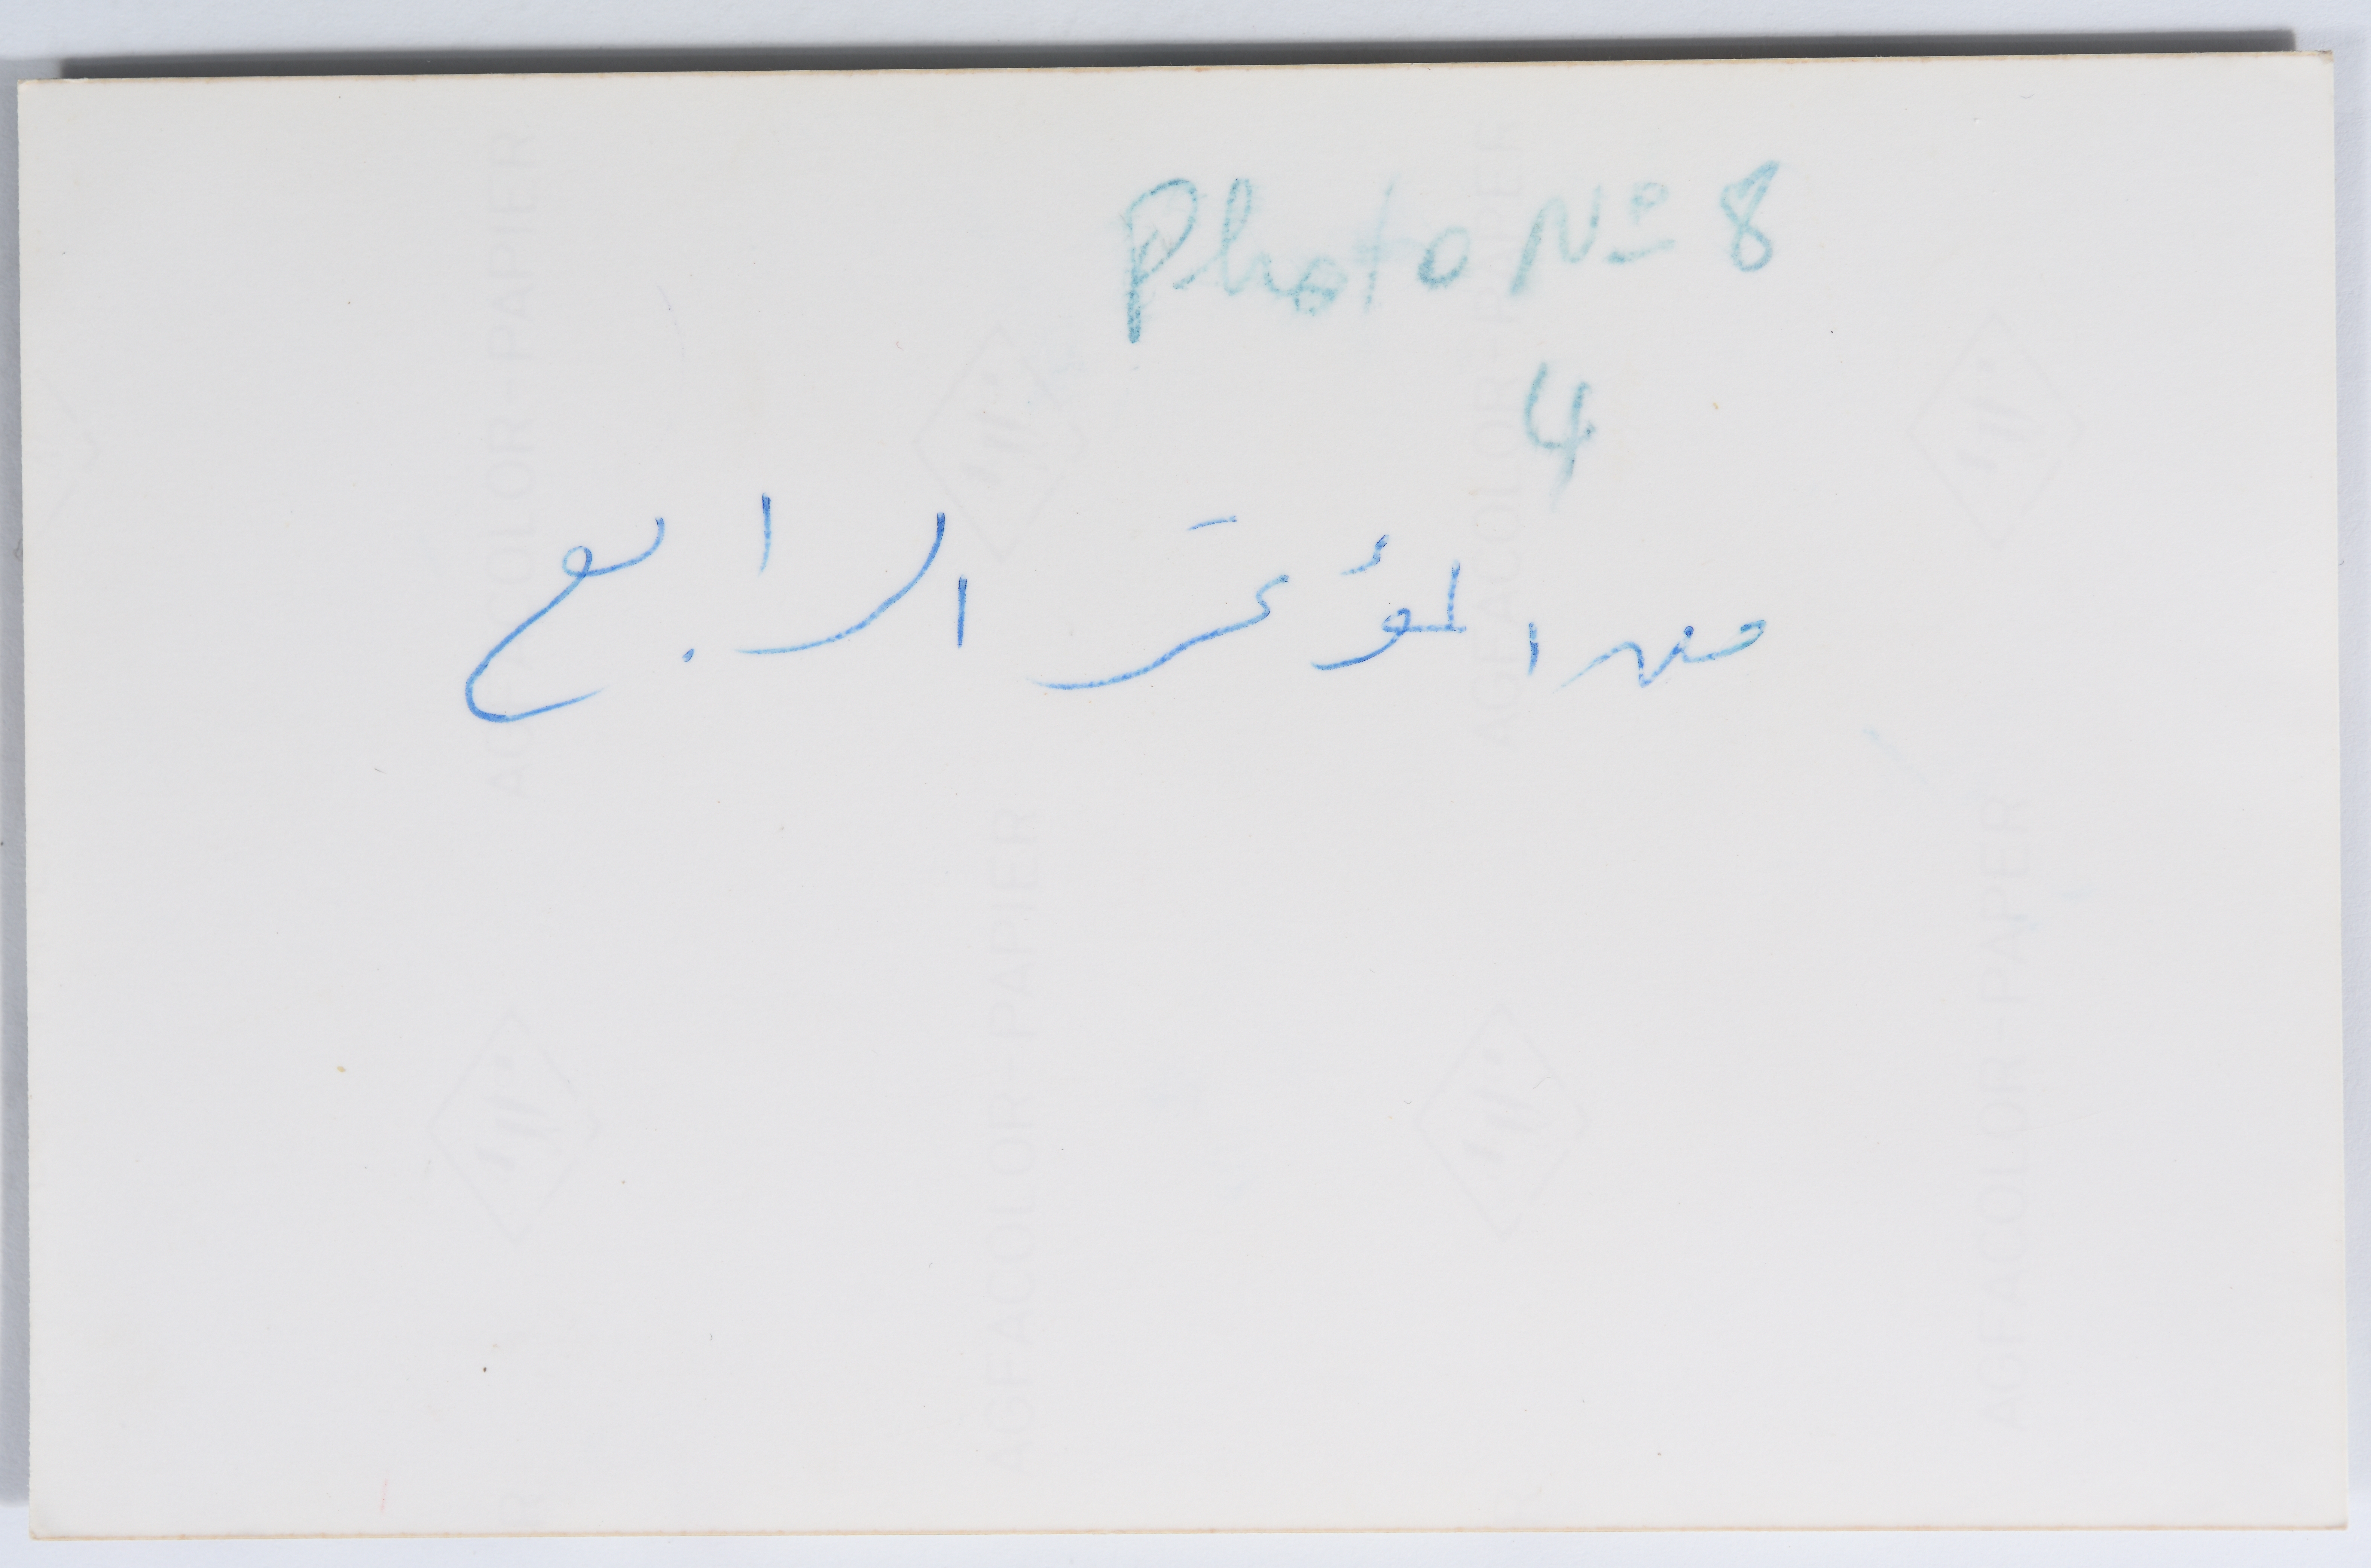 Photo Nº 8
4
من المؤتمر الرابع
AGFACOLOR-PAPIER
AGFACOLOR-PAPIER
AGFACOLOR-PAPIER
AGFACOLOR-PAPER